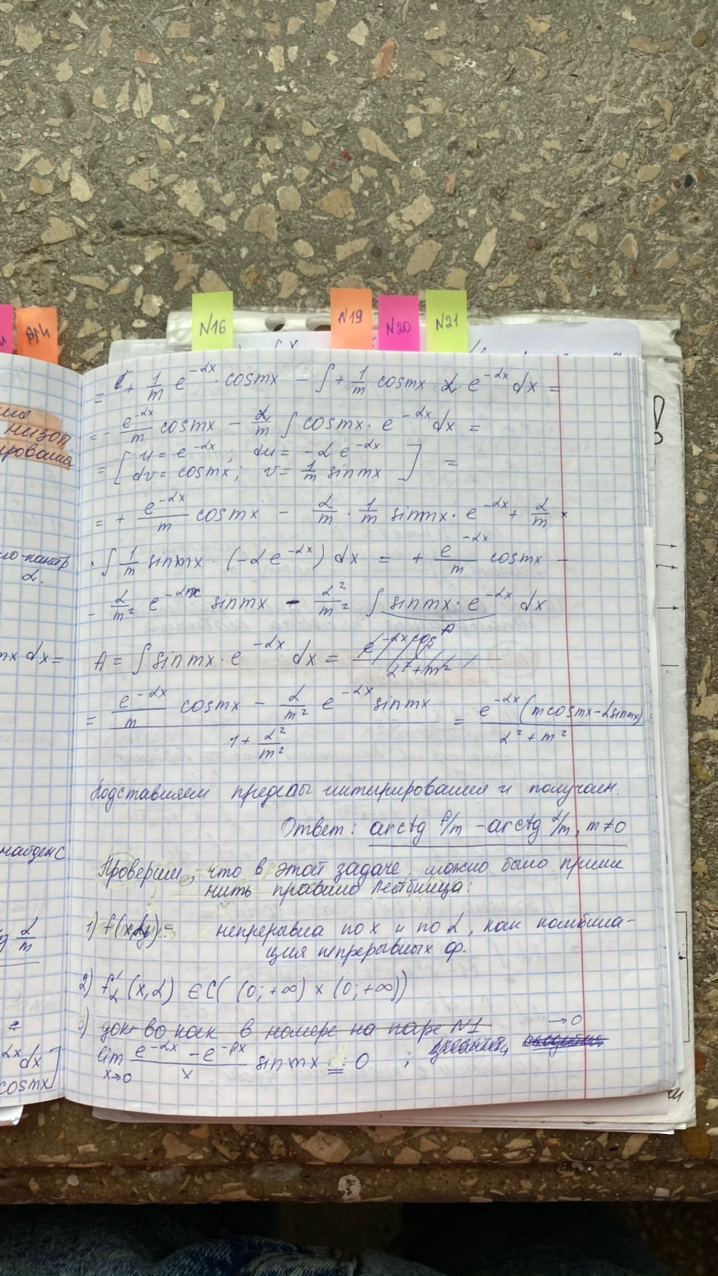 N16
N19
N20
N21
= + 1/m e^{-αx} · cosmx − ∫ + 1/m cosmx · α e^{-αx} dx =
= − e^{-αx}/m cosmx − α/m ∫ cosmx · e^{-αx} dx =
= [ u = e^{-αx}; du = −α e^{-αx}
dv = cosmx; v = 1/m sinmx ] =
= + e^{-αx}/m cosmx − α/m · 1/m sinmx · e^{-αx} + α/m ×
· ∫ 1/m sinmx · (−α e^{-αx}) dx = + e^{-αx}/m cosmx −
− α/m² e^{-αx} sinmx − α²/m² ∫ sinmx · e^{-αx} dx
A = ∫ sinmx · e^{-αx} dx =
= (e^{-αx}/m cosmx − α/m² e^{-αx} sinmx) / (1 + α²/m²) = e^{-αx} (mcosmx − αsinmx) / (α² + m²)
Подставляем пределы интегрирования и получаем.
Ответ: arctg β/m − arctg α/m, m≠0
Проверим, что в этой задаче можно было приме
нить правило Лейбница:
1) f(x,α) = непрерывна по x и по α, как комбина-
ция непрерывных ф.
2) f'_α (x,α) ∈ C( (0; +∞) × (0; +∞))
3) док-во как в номере на паре N1
lim x→0 (e^{-αx} − e^{-βx})/x sinmx = 0 ;
→0